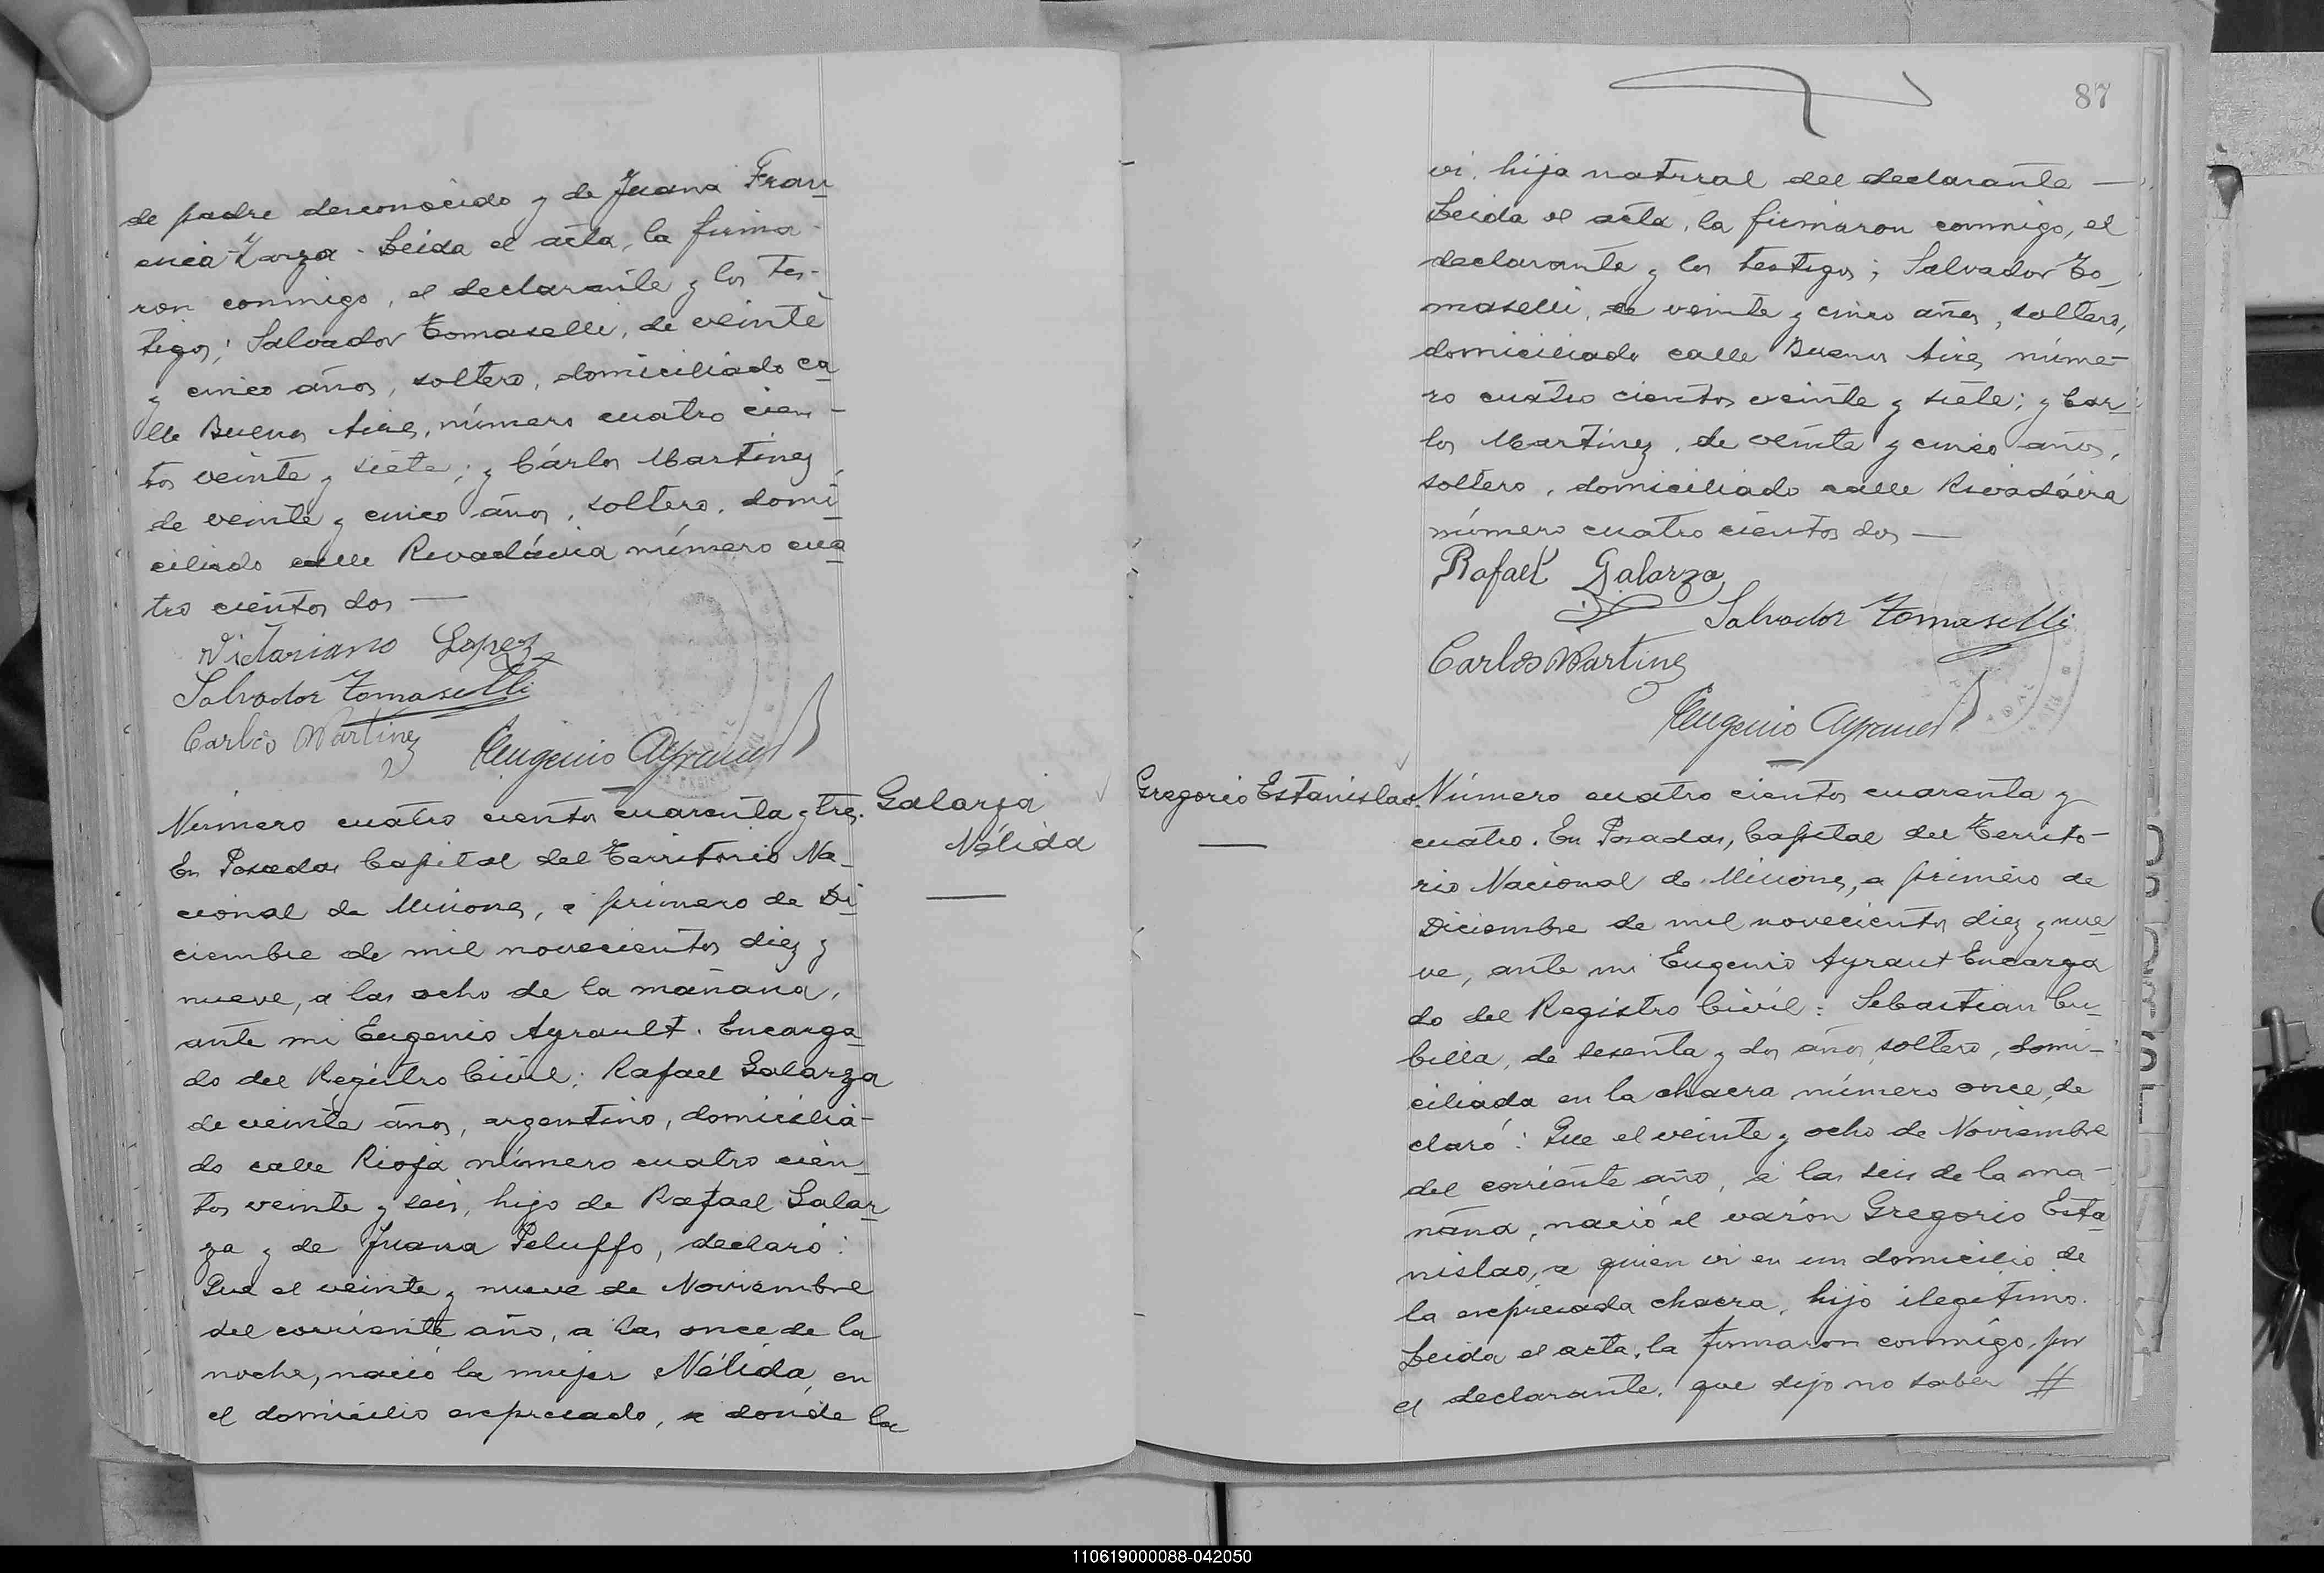 de padre desconocido y de Juana Fran
cisca Zarza. Leida el acta, la firma-
ron conmigo, el declarante y los tes-
tigos; Salvador Tomaselli, de veinte
y cinco años, soltero, domiciliado ca
lle Buenos Aires, número cuatro cien-
tos veinte y siete; y Cárlos Martinez
de veinte y cinco años, soltero, domi
ciliado calle Rivadávia número cua
tro cientos dos —
Victoriano Lopez
Salvador Tomaselli
Carlos Martinez
Eugenio Ayrault
Número cuatro cientos cuarenta y tres.
En Posadas Capital del Territorio Na-
cional de Misiones, a primero de Di
ciembre de mil novecientos diez y
nueve, a las ocho de la mañana,
ante mi Eugenio Ayrault. Encarga
do del Registro Civil; Rafael Galarza
de veinte años, argentino, domicilia-
do calle Rioja número cuatro cien
tos veinte y seis, hijo de Rafael Galar
za y de Juana Peluffo, declaró:
Que el veinte y nueve de Noviembre
del corriente año, a las once de la
noche, nació la mujer Nélida, en
el domicilio expresado, a donde la
Galarza
Nélida
87
vi. hija natural del declarante —
Leida el acta, la firmaron conmigo, el
declarante y los testigos; Salvador To-
maselli, de veinte y cinco años, soltero,
domiciliado calle Buenos Aires núme-
ro cuatro cientos veinte y siete; y Car-
los Martinez, de veinte y cinco años,
soltero, domiciliado calle Rivadávia
número cuatro cientos dos —
Rafael Galarza
Salvador Tomaselli
Carlos Martinez
Eugenio Ayrault
Gregorio Estanislao.
Número cuatro cientos cuarenta y
cuatro. En Posadas, Capital del Territo-
rio Nacional de Misiones, a primero de
Diciembre de mil novecientos diez y nue
ve, ante mi Eugenio Ayraut Encarga
do del Registro Civil: Sebastian Cu-
billa, de sesenta y dos años, soltero, domi-
ciliada en la chacra número once, de
claró: Que el veinte y ocho de Noviembre
del corriente año, a las seis de la ma-
ñana, nació el varón Gregorio Esta
nislao, a quien vi en un domicilio de
la expresada chacra, hijo ilegitimo.
Leida el acta, la firmaron conmigo, por
el declarante, que dijo no saber #
110619000088-042050